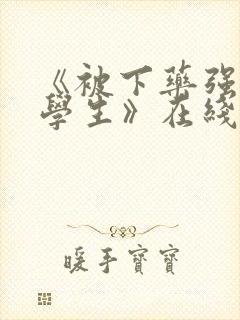 《被下藥强
學生》在綫
暖手寶寶